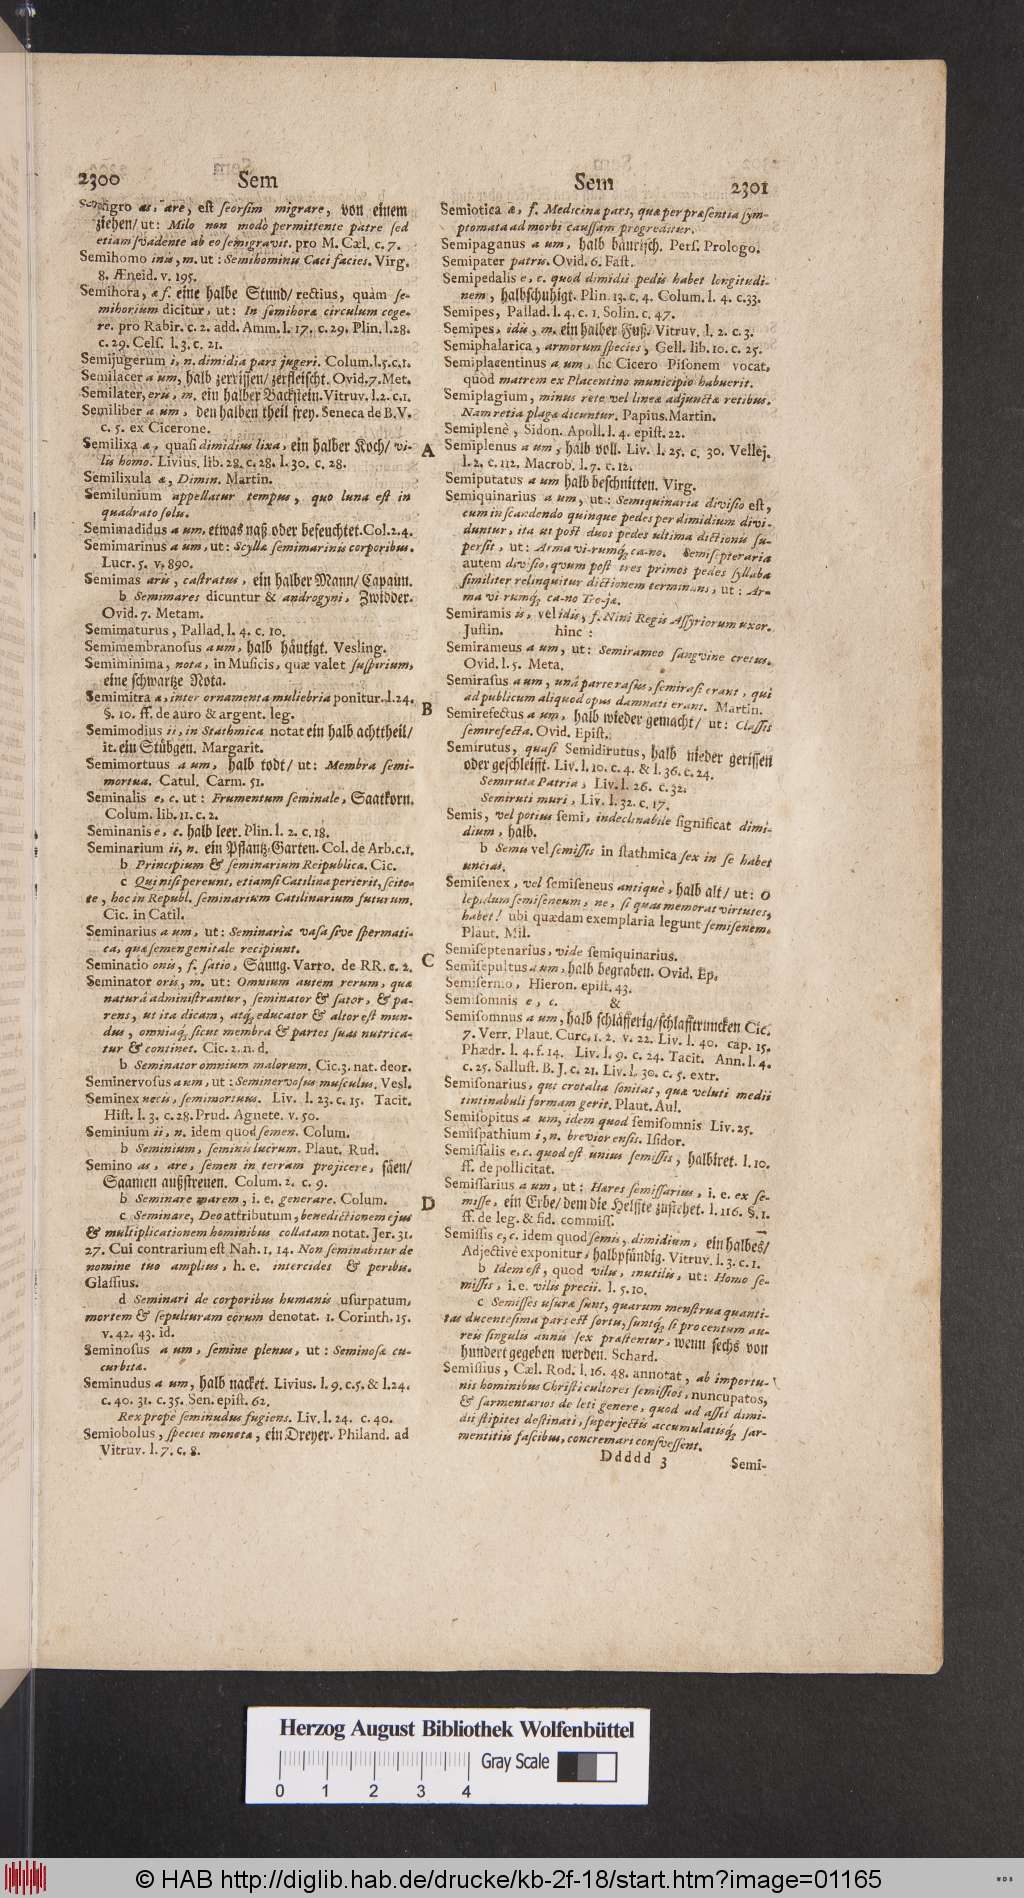 2300 Sem
Semigro as, are, est seorsim migrare, von einem
ziehen/ ut: Milo non modò permittente patre sed
etiam svadente ab eo semigravit. pro M. Cæl. c. 7.
Semihomo inis, m. ut: Semihominis Caci facies. Virg.
8. Æneid. v. 195.
Semihora, æ f. eine halbe Stund/ rectius, quàm se-
mihorium dicitur, ut: In semihoræ circulum coge-
re. pro Rabir. c. 2. add. Amm. l. 17. c. 29. Plin. l. 28.
c. 29. Cels. l. 3. c. 21.
Semijugerum i, n. dimidia pars jugeri. Colum. l. 5. c. 1.
Semilacer a um, halb zerrissen/ zerfleischt. Ovid. 7. Met.
Semilater, eris, m. ein halber Backstein. Vitruv. l. 2. c. 1.
Semiliber a um, den halben theil frey. Seneca de B. V.
c. 5. ex Cicerone.
Semilixa æ, quasi dimidius lixa, ein halber Koch/ vi-
lis homo. Livius. lib. 28. c. 28. l. 30. c. 28.
Semilixula æ, Dimin. Martin.
Semilunium appellatur tempus, quo luna est in
quadrato solu.
Semimadidus a um, etwas naß oder befeuchtet. Col. 2. 4.
Semimarinus a um, ut: Scyllæ semimarinis corporibus.
Lucr. 5. v. 890.
Semimas aris, castratus, ein halber Mann/ Capaun.
b Semimares dicuntur & androgyni, Zwidder.
Ovid. 7. Metam.
Semimaturus, Pallad. l. 4. c. 10.
Semimembranosus a um, halb häutigt. Vesling.
Semiminima, nota, in Musicis, quæ valet suspirium,
eine schwartze Nota.
Semimitra æ, inter ornamenta muliebria ponitur. l. 24.
§. 10. ff. de auro & argent. leg.
Semimodius ii, in Stathmica notat ein halb achttheil/
it. ein Stübgen. Margarit.
Semimortuus a um, halb todt/ ut: Membra semi-
mortua. Catul. Carm. 51.
Seminalis e, c. ut: Frumentum seminale, Saatkorn.
Colum. lib. 11. c. 2.
Seminanis e, c. halb leer. Plin. l. 2. c. 18.
Seminarium ii, n. ein Pflantz-Garten. Col. de Arb. c. 1.
b Principium & seminarium Reipublicæ. Cic.
c Qui nisi pereunt, etiamsi Catilina perierit, scito-
te, hoc in Republ. seminarium Catilinarium futurum.
Cic. in Catil.
Seminarius a um, ut: Seminaria vasa sive spermati-
ca, quæ semen genitale recipiunt.
Seminatio onis, f. satio, Säung. Varro. de RR. c. 2.
Seminator oris, m. ut: Omnium autem rerum, quæ
naturâ administrantur, seminator & sator, & pa-
rens, ut ita dicam, atq; educator & altor est mun-
dus, omniaq; sicut membra & partes suas nutrica-
tur & continet. Cic. 2. n. d.
b Seminator omnium malorum. Cic. 3. nat. deor.
Seminervosus a um, ut: Seminervosus musculus. Vesl.
Seminex necis, semimortuus. Liv. l. 23. c. 15. Tacit.
Hist. l. 3. c. 28. Prud. Agnete. v. 50.
Seminium ii, n. idem quod semen. Colum.
b Seminium, seminis lucrum. Plaut. Rud.
Semino as, are, semen in terram projicere, säen/
Saamen außstreuen. Colum. 2. c. 9.
b Seminare marem, i. e. generare. Colum.
c Seminare, Deo attributum, benedictionem ejus
& multiplicationem hominibus collatam notat. Jer. 31.
27. Cui contrarium est Nah. 1, 14. Non seminabitur de
nomine tuo amplius, h. e. intercides & peribis.
Glassius.
d Seminari de corporibus humanis usurpatum,
mortem & sepulturam eorum denotat. 1. Corinth. 15.
v. 42. 43. id.
Seminosus a um, semine plenus, ut: Seminosæ cu-
curbitæ.
Seminudus a um, halb nacket. Livius. l. 9. c. 5. & l. 24.
c. 40. 31. c. 35. Sen. epist. 62.
Rex propè seminudus fugiens. Liv. l. 24. c. 40.
Semiobolus, species monetæ, ein Dreyer. Philand. ad
Vitruv. l. 7. c. 8.
A
B
C
D
Sem 2301
Semiotica æ, f. Medicinæ pars, quæ per præsentia sym-
ptomata ad morbi caussam progreditur.
Semipaganus a um, halb bäurisch. Pers. Prologo.
Semipater patris. Ovid. 6. Fast.
Semipedalis e, c. quod dimidii pedis habet longitudi-
nem, halbschuhigt. Plin. 13. c. 4. Colum. l. 4. c. 33.
Semipes, Pallad. l. 4. c. 1. Solin. c. 47.
Semipes, idis, m. ein halber Fuß. Vitruv. l. 2. c. 3.
Semiphalarica, armorum species, Gell. lib. 10. c. 25.
Semiplacentinus a um, sic Cicero Pisonem vocat,
quòd matrem ex Placentino municipio habuerit.
Semiplagium, minus rete vel lineæ adjunctæ retibus.
Nam retia plagæ dicuntur. Papius. Martin.
Semiplenè, Sidon. Apoll. l. 4. epist. 22.
Semiplenus a um, halb voll. Liv. l. 25. c. 30. Vellej.
l. 2. c. 112. Macrob. l. 7. c. 12.
Semiputatus a um halb beschnitten. Virg.
Semiquinarius a um, ut: Semiquinaria divisio est,
cum in scandendo quinque pedes per dimidium divi-
duntur, ita ut post duos pedes ultima dictionis su-
persit, ut: Arma vi-rumq; ca-no. Semiseptenaria
autem divisio, qvum post tres primos pedes syllaba
similiter relinquitur dictionem terminans, ut: Ar-
ma vi-rumq; ca-no Tro-jæ.
Semiramis is, vel idis, f. Nini Regis Assyriorum uxor.
Justin. hinc:
Semirameus a um, ut: Semirameo sangvine cretus.
Ovid. l. 5. Meta.
Semirasus a um, unâ parte rasus, semirasi erant, qui
ad publicum aliquod opus damnati erant. Martin.
Semirefectus a um, halb wieder gemacht/ ut: Classis
semirefecta. Ovid. Epist.
Semirutus, quasi Semidirutus, halb nieder gerissen
oder geschleifft. Liv. l. 10. c. 4. & l. 36. c. 24.
Semiruta Patria, Liv. l. 26. c. 32.
Semiruti muri, Liv. l. 32. c. 17.
Semis, vel potius semi, indeclinabile significat dimi-
dium, halb.
b Semis vel semissis in stathmica sex in se habet
uncias.
Semisenex, vel semiseneus antiquè, halb alt/ ut: O
lepidum semiseneum, ne, si quas memorat virtutes,
habet! ubi quædam exemplaria legunt semisenem.
Plaut. Mil.
Semiseptenarius, vide semiquinarius.
Semisepultus a um, halb begraben. Ovid. Ep.
Semisermo, Hieron. epist. 43.
Semisomnis e, c. &
Semisomnus a um, halb schläfferig/ schlafftruncken Cic.
7. Verr. Plaut. Curc. 1. 2. v. 22. Liv. l. 40. cap. 15.
Phædr. l. 4. f. 14. Liv. l. 9. c. 24. Tacit. Ann. l. 4.
c. 25. Sallust. B. J. c. 21. Liv. l. 30. c. 5. extr.
Semisonarius, qui crotalia sonitat, quæ veluti medii
tintinabuli formam gerit. Plaut. Aul.
Semisopitus a um, idem quod semisomnis Liv. 25.
Semispathium i, n. brevior ensis. Isidor.
Semissalis e, c. quod est unius semissis, halbiret. l. 10.
ff. de pollicitat.
Semissarius a um, ut: Hæres semissarius, i. e. ex se-
misse, ein Erbe/ dem die Helffte zustehet. l. 116. §. 1.
ff. de leg. & fid. commiss.
Semissis e, c. idem quod semis, dimidium, ein halbes/
Adjectivè exponitur, halbpfündig. Vitruv. l. 3. c. 1.
b Idem est, quod vilis, inutilis, ut: Homo se-
missis, i. e. vilis precii. l. 5. 10.
c Semisses usuræ sunt, quarum menstrua quanti-
tas ducentesima pars est sortis, suntq; si pro centum au-
reis singulis annis sex præstentur, wenn sechs von
hundert gegeben werden. Schard.
Semissius, Cæl. Rod. l. 16. 48. annotat, ab importu-
nis hominibus Christi cultores semissios, nuncupatos,
& sarmentarios de leti genere, quod ad assis dimi-
dii stipites destinati, superjectis accumulatisq; sar-
mentitiis fascibus, concremari consvessent.
Ddddd 3 Semi-
Herzog August Bibliothek Wolfenbüttel
Gray Scale
0 1 2 3 4
© HAB http://diglib.hab.de/drucke/kb-2f-18/start.htm?image=01165